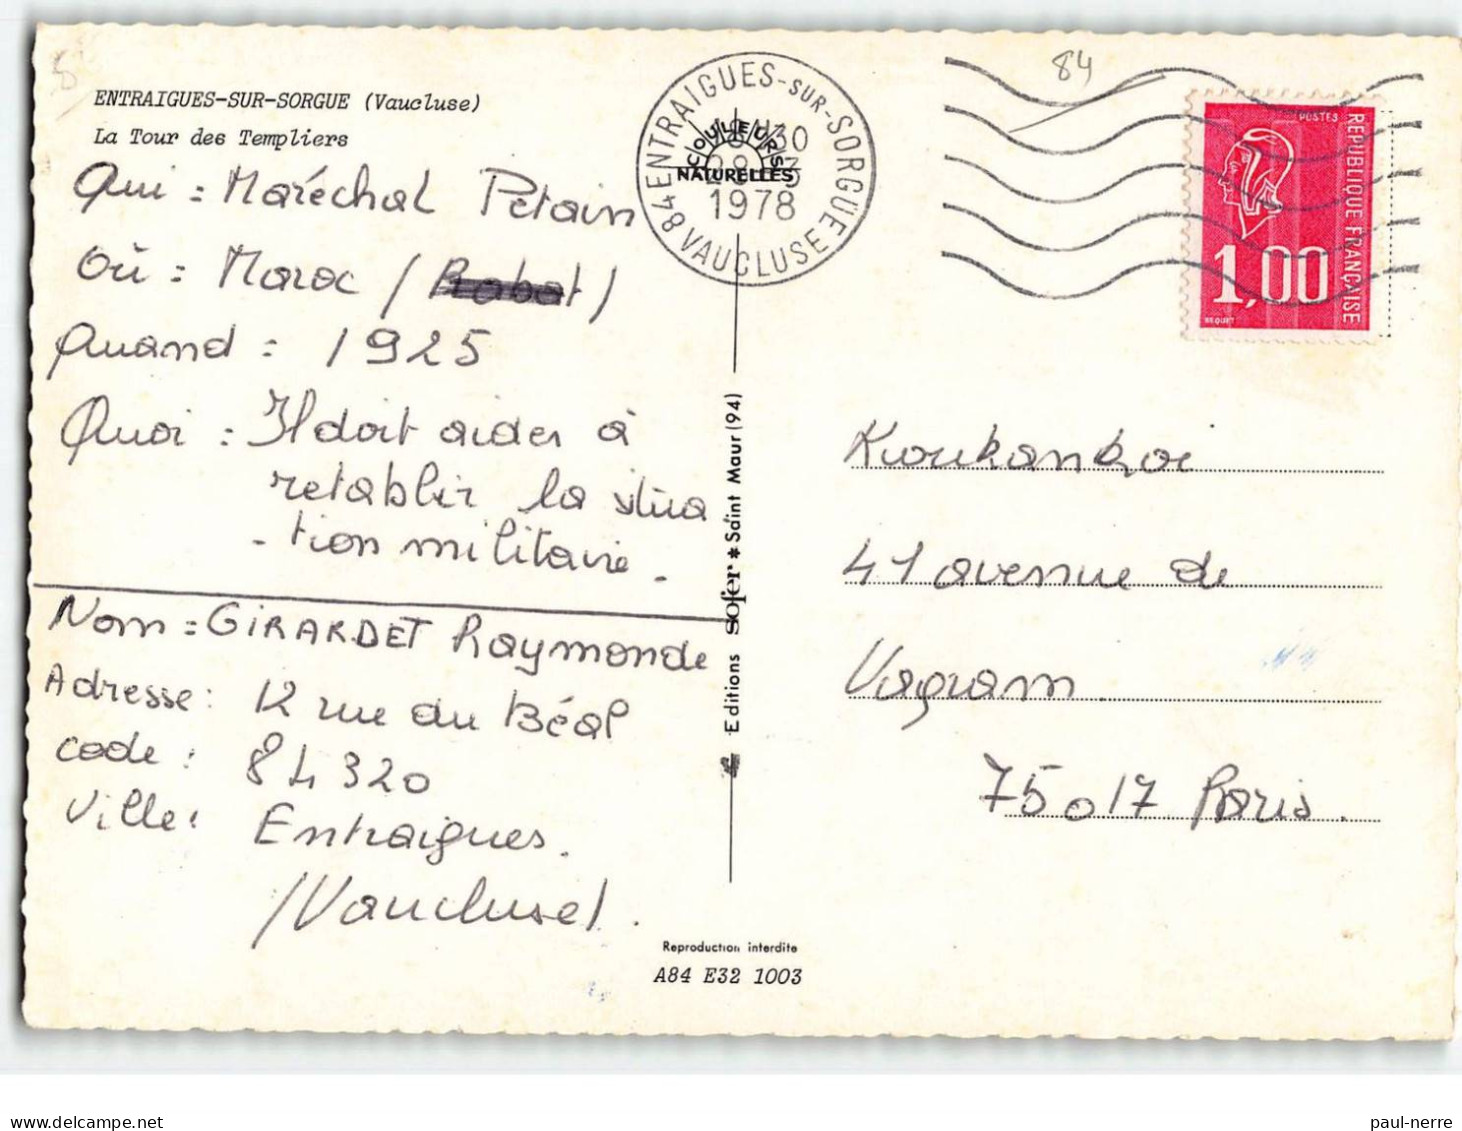 ENTRAIGUES-SUR-SORGUE (Vaucluse)
La Tour des Templiers
Qui : Maréchal Pétain
Où : Maroc / Rabat /
Quand : 1925
Quoi : Il doit aider à
retablir la situa
- tion militaire .
Nom = GIRARDET Raymonde
Adresse : 12 rue du Béal
Code : 84320
Ville : Entraigues .
/Vaucluse/ .
84 ENTRAIGUES-SUR-SORGUE
VAUCLUSE
1978
COULEURS
NATURELLES
84
POSTES
REPUBLIQUE FRANÇAISE
1,00
BEQUET
Editions Sofer * Saint Maur (94)
Koukankoi
41 avenue de
Wagram
75017 Paris .
Reproduction interdite
A84 E32 1003
paul-nerre